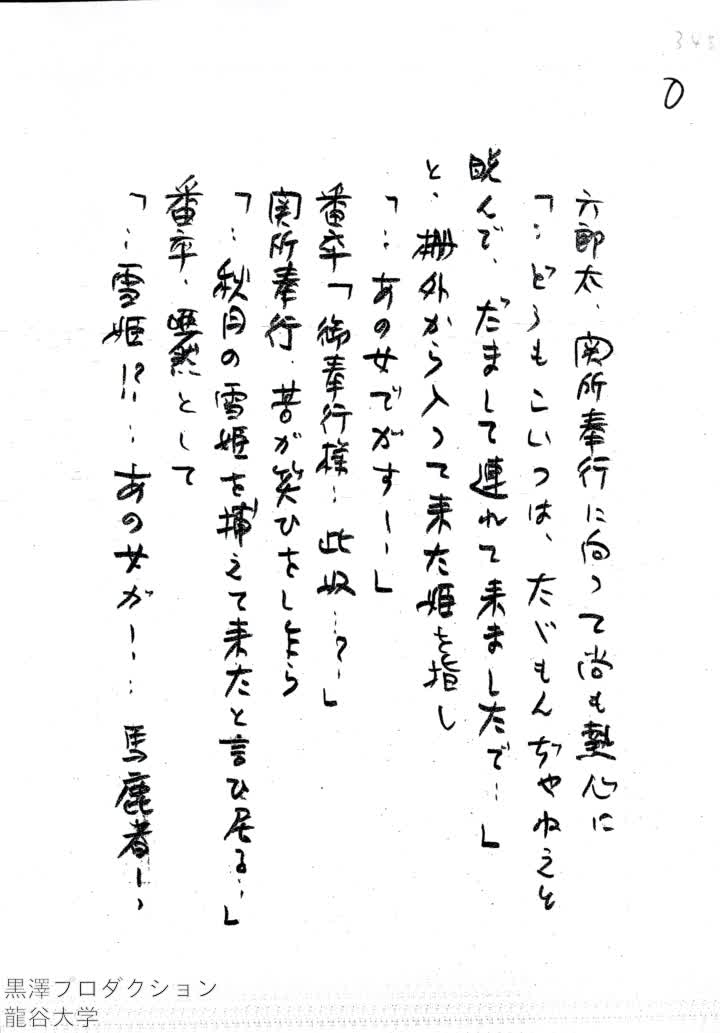 348
0
六郎太、関所奉行に向つて尚も熱心に
「‥どうもこいつは、たゞもんぢやねえと
睨んで、だまして連れて来ましたで‥」
と、柵外から入つて来た姫を指し
「‥あの女でがす！！」
番卒「御奉行様‥此奴‥？‥」
関所奉行、苦が笑ひをし乍ら
「‥秋月の雪姫を捕えて来たと言ひ居る‥」
番卒、唖然として
「‥雪姫！？‥あの女が！‥馬鹿者！、
黒澤プロダクション
龍谷大学